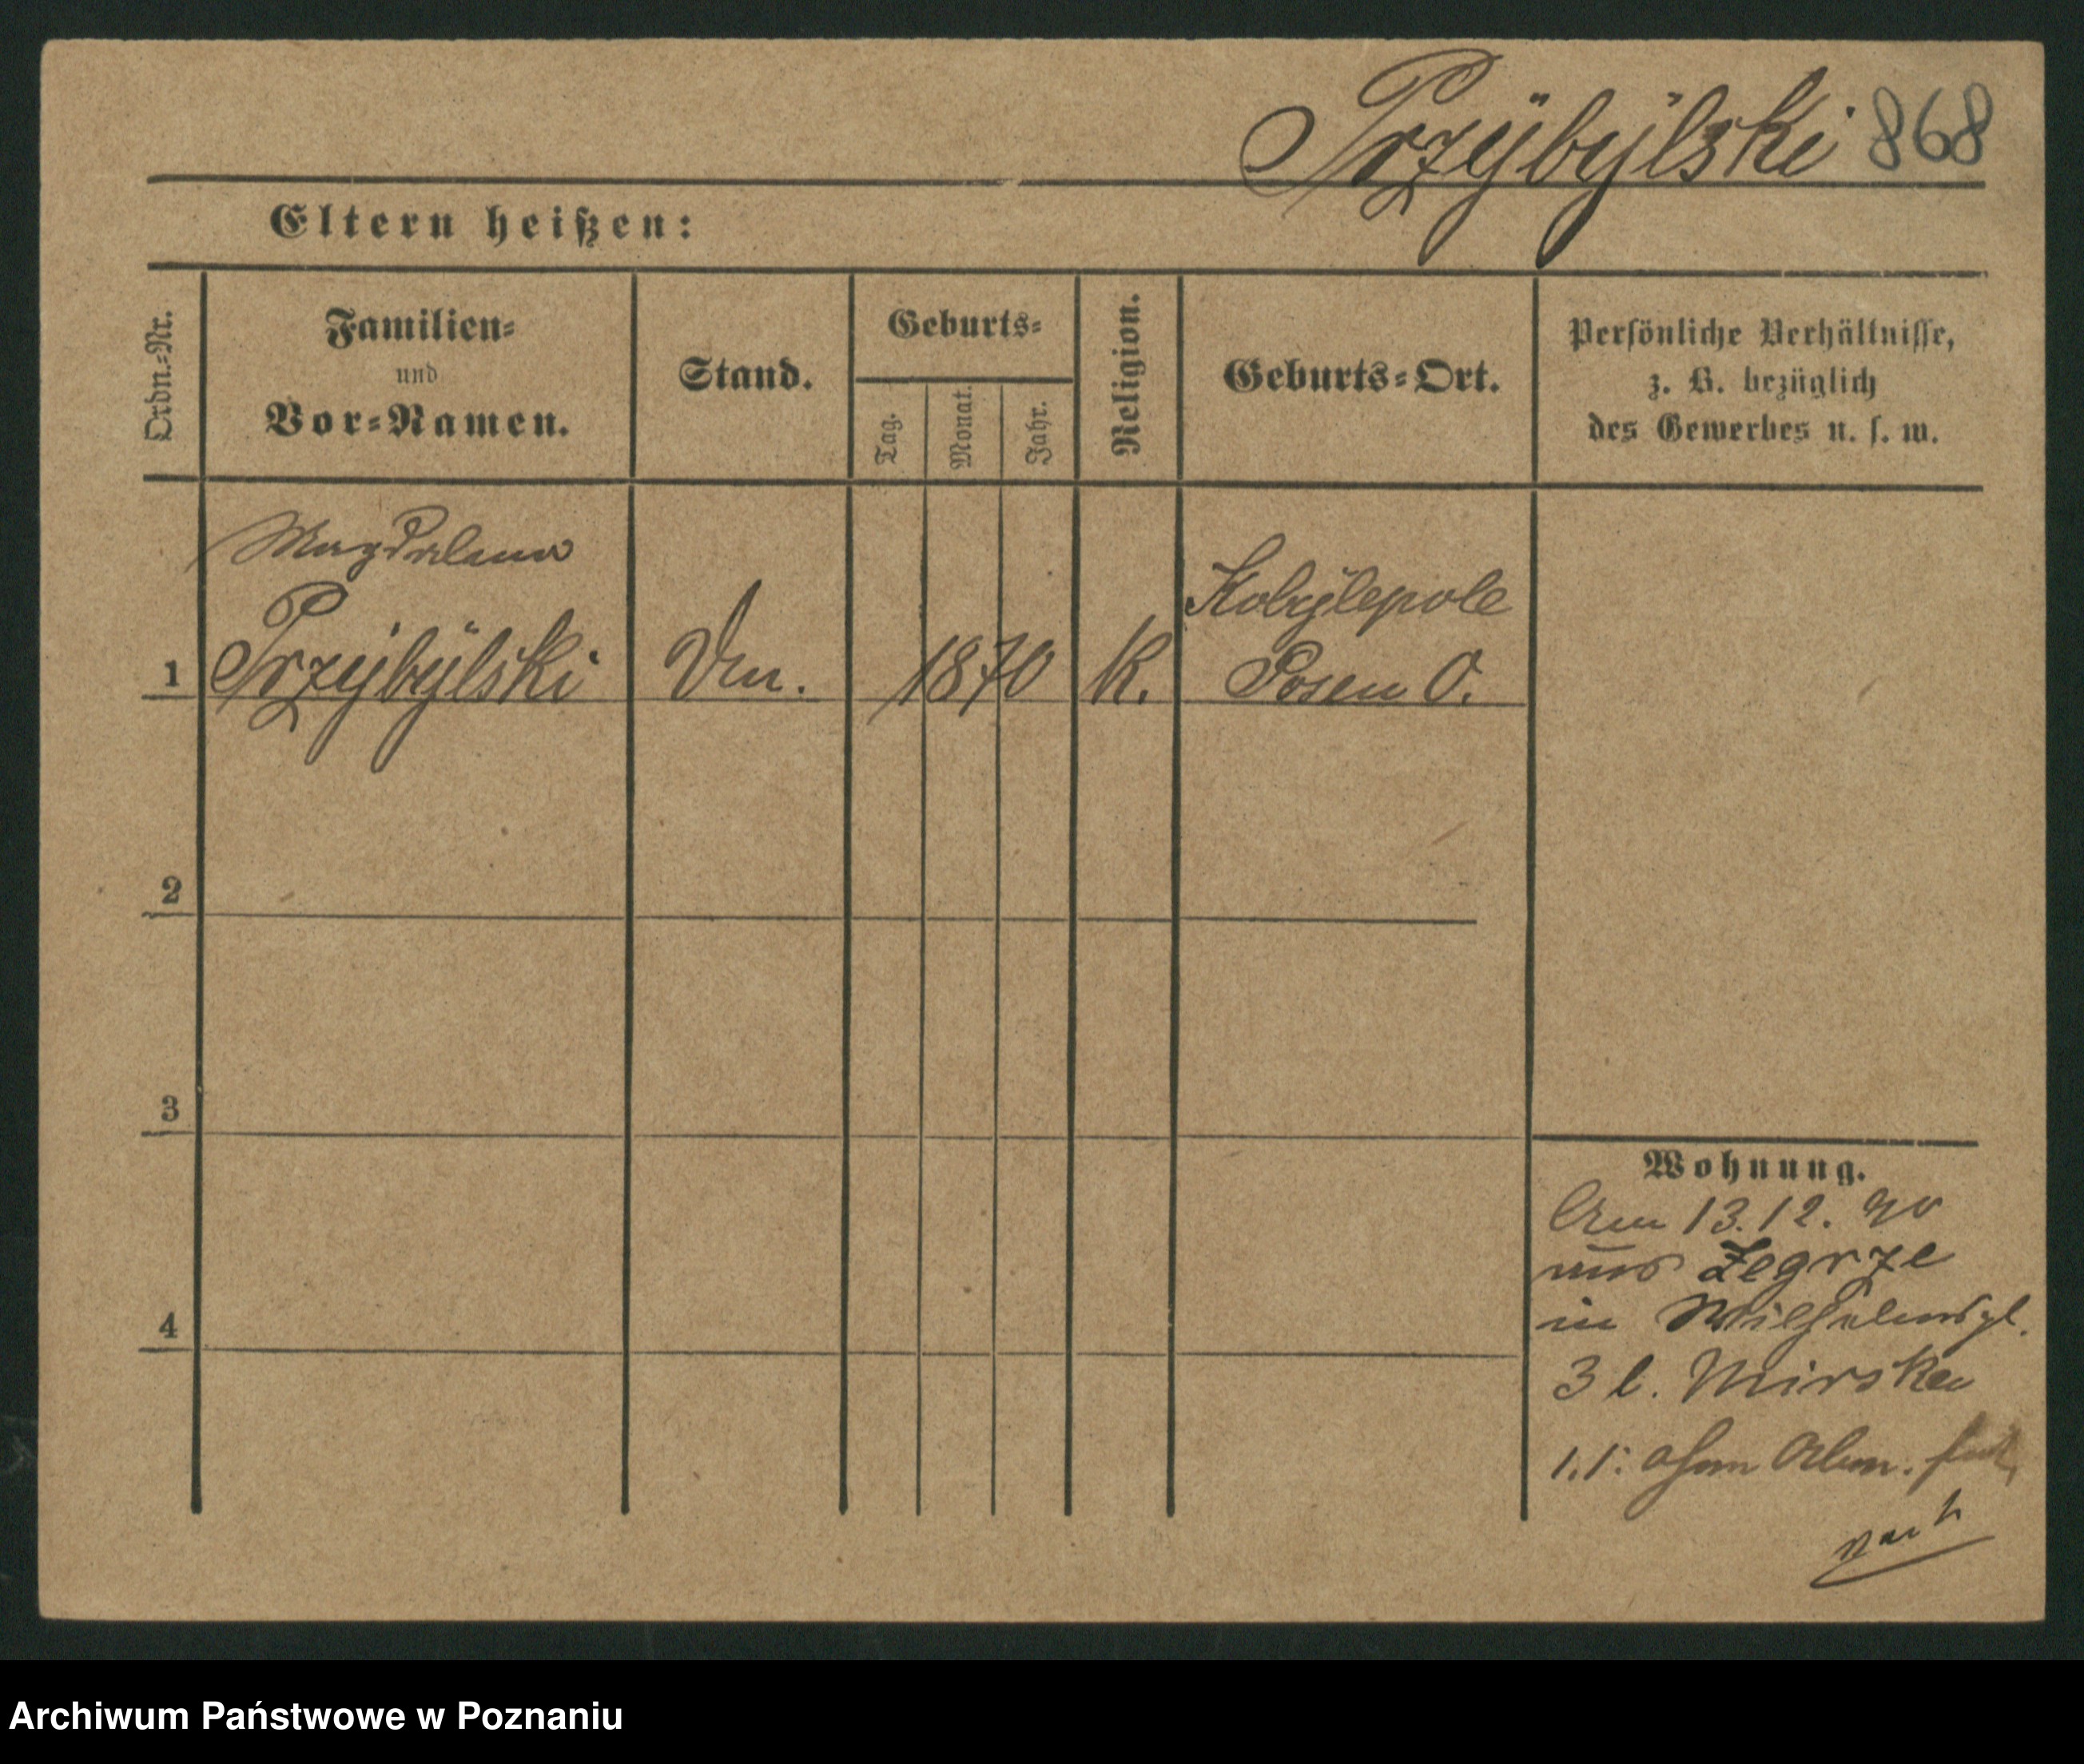 Przÿbÿlski 868
Eltern heißen:
Ordn.-Nr.
Familien-
und
Vor-Namen.
Stand.
Geburts-
Tag.
Monat.
Jahr.
Religion.
Geburts-Ort.
Persönliche Verhältnisse,
z. B. bezüglich
des Gewerbes u. s. w.
Magdalena
Przÿbÿlski
1
1870
K.
Kobÿlepole
Posen O.
2
3
4
Wohnung.
Am 13.12.90
aus Zegrze
in Wilhelmspl.
3 b. Mirska
1.1. ohne Abm. fort
Archiwum Państwowe w Poznaniu